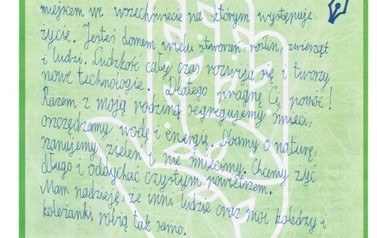 miejscem we wszechświecie na którym występuje
życie. Jesteś domem wielu stworzeń, roślin, zwierząt
i ludzi. Ludzkość cały czas rozwija się i tworzy
nowe technologie. Dlatego pragnę Ci pomóc!
Razem z moją rodziną segregujemy śmieci,
oszczędzamy wodę i energię. Dbamy o naturę,
szanujemy zieleń i nie śmiecimy. Chcemy żyć
długo i oddychać czystym powietrzem.
Mam nadzieję, że inni ludzie oraz moi koledzy i
koleżanki robią tak samo.